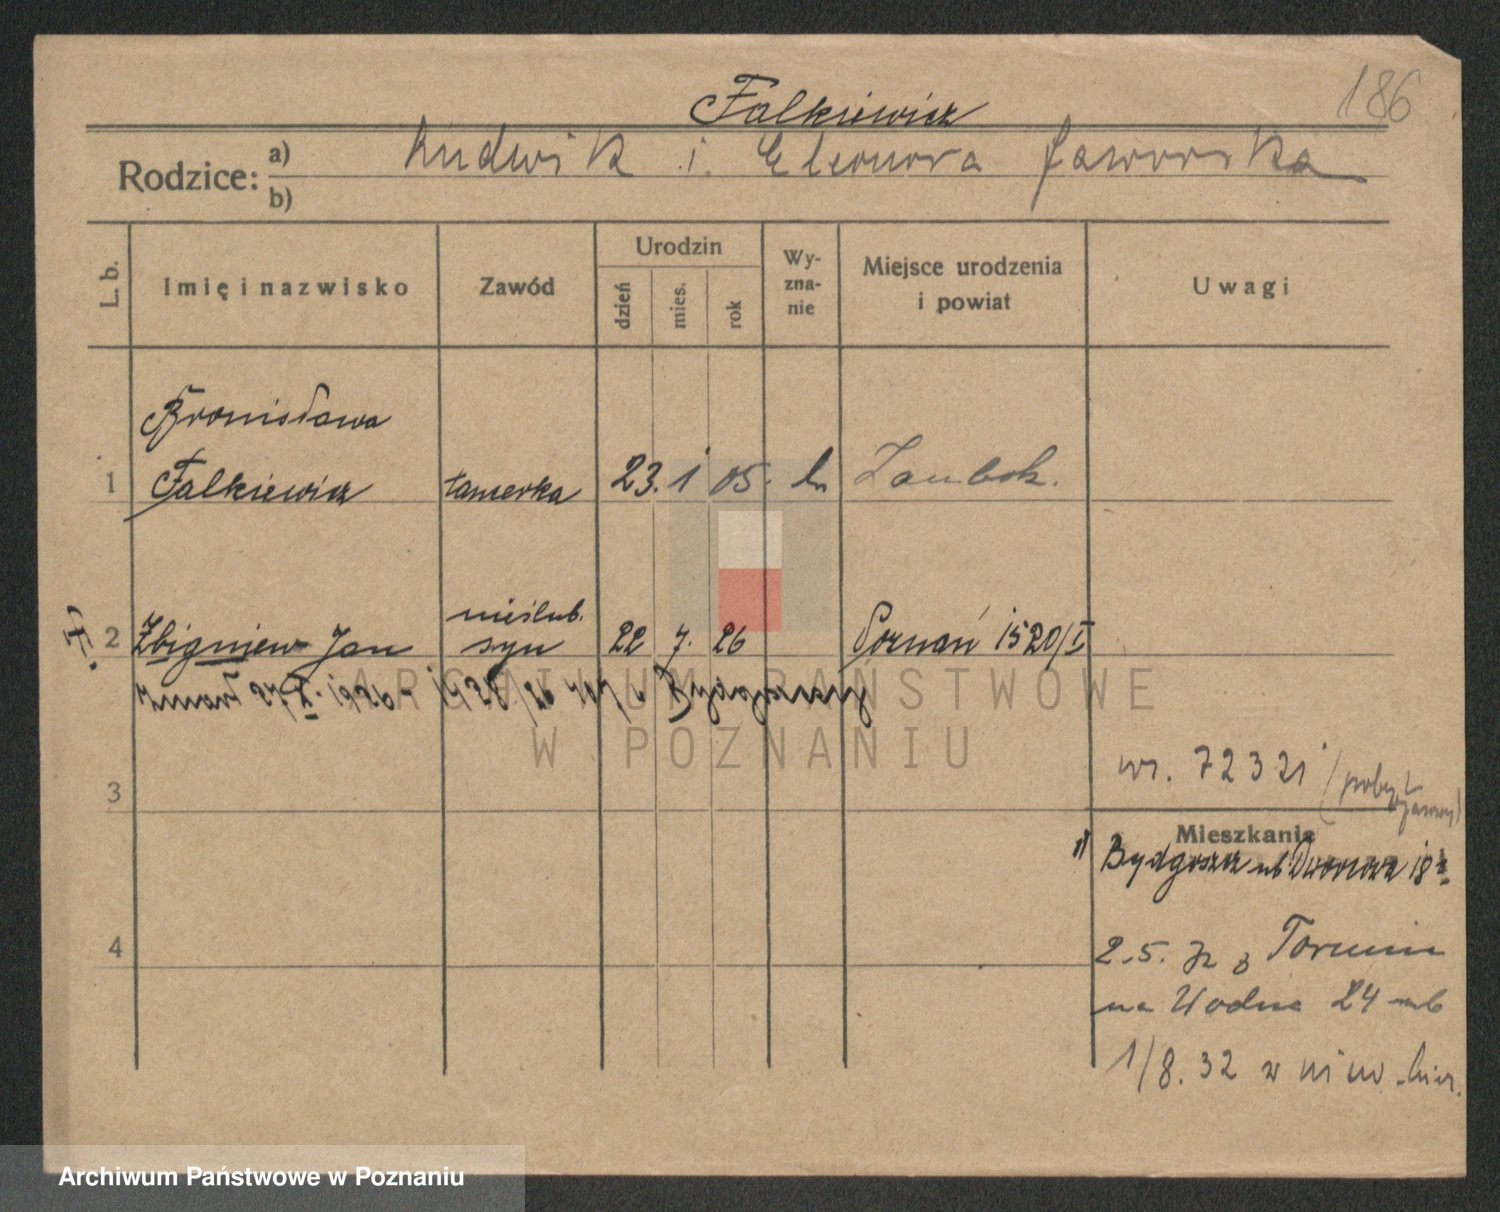 186
Falkiewicz
Rodzice: a) Ludwik i Eleonora Jaworska
b)
L. b. Imię i nazwisko Zawód Urodzin dzień mies. rok Wyznanie Miejsce urodzenia i powiat Uwagi
Bronisława
1 Falkiewicz 23. 1 05.
nieślub.
2 Zbigniew Jan syn 22 7. 26 Poznań 1520/I
zmarł
ARCHIWUM PAŃSTWOWE
W POZNANIU
nr. 72321 (pobyt
3
Mieszkania
1) Bydgoszcz ul Dworcowa 18
4
2.5. z Torunia
na Wodna 24
1/8. 32 w
Archiwum Państwowe w Poznaniu